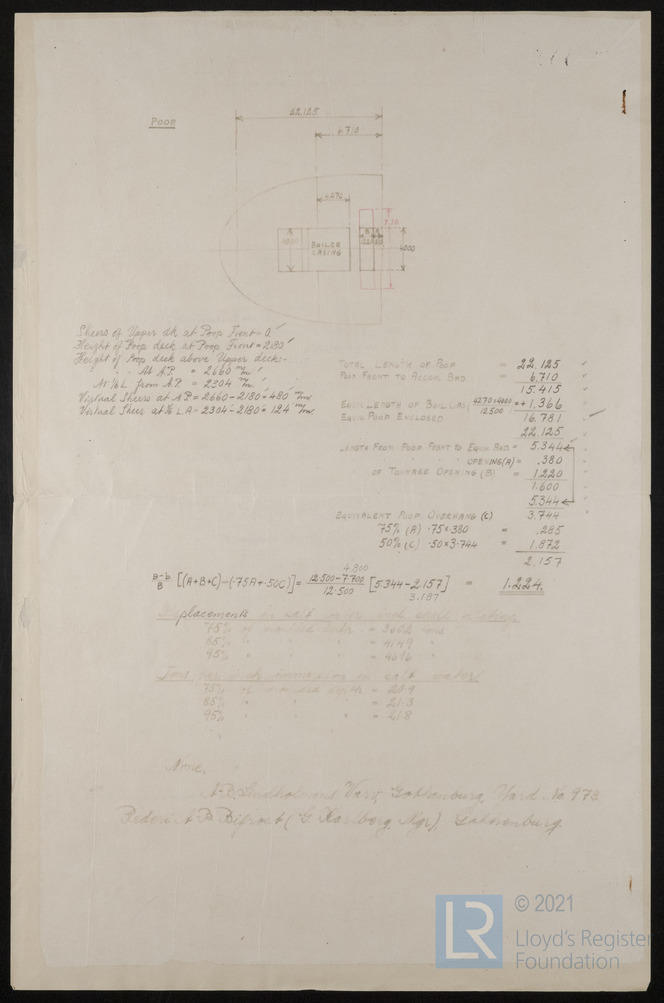 POOP
22.125
6.710
4.270
4000
BOILER
CASING
B A
7.70
4000
Sheers of Upper dk at Poop Front = 0
Height of Poop deck at Poop Front = 2180
Height of Poop deck above Upper deck:-
At A.P. = 2660 m/m
At ⅙ L from A.P. = 2304 m/m
Virtual Sheers at A.P = 2660 - 2180 = 480 m/m
Virtual Sheer at ⅙ L.A = 2304 - 2180 = 124 m/m
TOTAL LENGTH OF POOP = 22.125
POOP FRONT TO ACCOM. BHD = 6.710
15.415
EQUIV. LENGTH OF BOIL. CAS( 4270×4000 / 12500 = + 1.366
EQUIV. POOP ENCLOSED 16.781
22.125
LENGTH FROM POOP FRONT TO EQUIV. BHD = 5.344
" " " OPENING (A) = .380
" OF TONNAGE OPENING (B) = 1.220
1.600
5.344
3.744
EQUIVALENT POOP OVERHANG (C)
75% (A) .75×.380 = .285
50% (C) .50×3.744 = 1.872
2.157
4.800
B-b / B [(A+B+C)-(.75A+.50C)] = 12.500-7.700 / 12.500 [5.344-2.157] = 1.224
3.187
Displacements in salt water
75% of moulded depth = 3662 tons
85% " " " = 4149 "
95% " " " = 4646 "
Tons per inch immersion in salt water
75% of moulded depth = 20.9
85% " " " = 21.3
95% " " " = 21.8
None.
A-B. Lindholmens Varv, Gothenburg, Yard No 973
Rederi A-B Bifrost (G Karlberg, Mgr), Gothenburg.
LR
© 2021
Lloyd's Register
Foundation